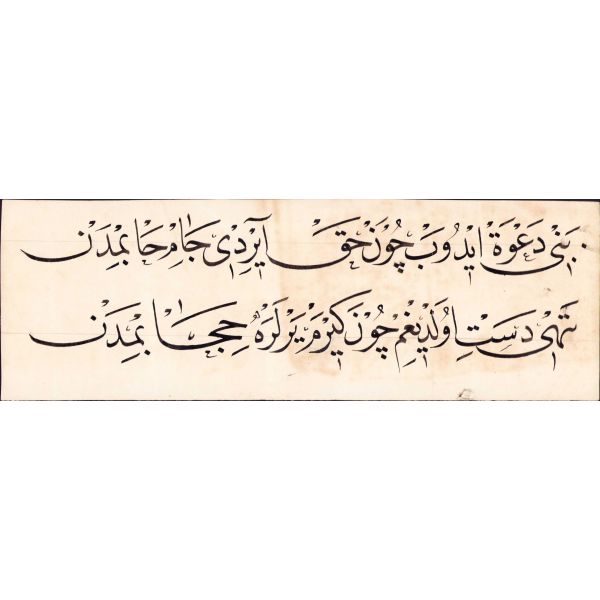 بنی دعوة ایدوب چون حق آیردی جام حابمدن
تهی دست اولدیغم چون کیرم یرلره حجابمدن